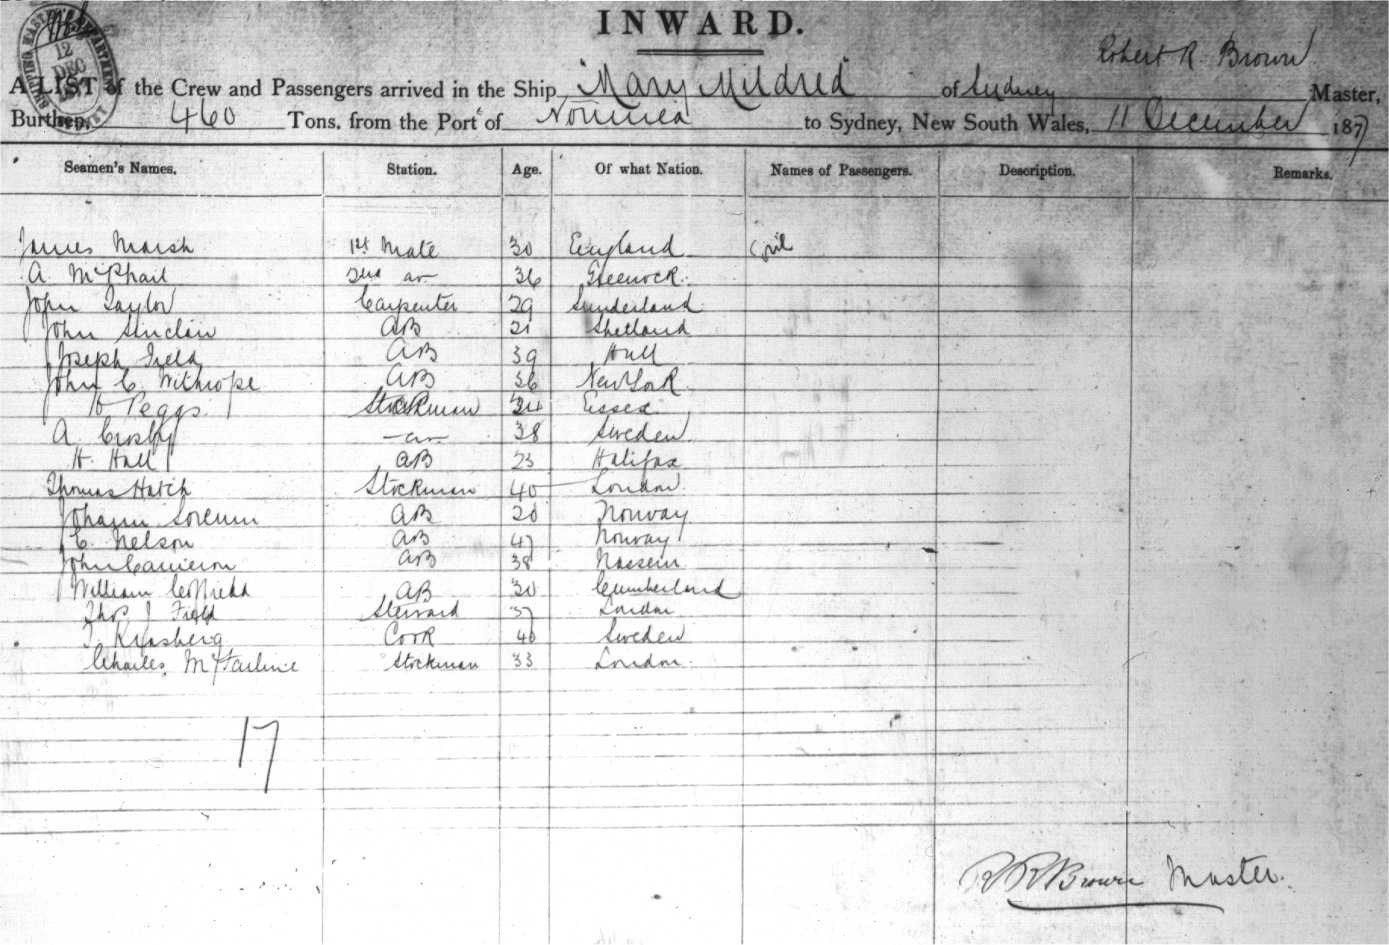 INWARD.
SHIPPING MASTER'S DEPARTMENT
12
DEC
Robert R. Brown
A LIST of the Crew and Passengers arrived in the Ship "Mary Mildred" of Sydney Master,
Burthen, 460 Tons, from the Port of Noumea to Sydney, New South Wales, 11 December 1877
Seamen's Names. Station. Age. Of what Nation. Names of Passengers. Description. Remarks.
James Marsh 1st Mate 30 England
A McPhail 2nd do 36 Greenock
John Taylor Carpenter 29 Sunderland
John Sinclair AB 21 Shetland
Joseph Field AB 39 Hull
John C. Withrope AB 36 New York
H Peggs Stockman 24 Essex
A Crosby do 38 Sweden
H. Hall AB 23 Halifax
Thomas Hatch Stockman 40 London
Johann Sorenin AB 20 Norway
C. Nelson AB 47 Norway
John Cameron AB 38 Nassau
William AB 30 Cumberland
Thos J Field Steward 37 London
Cook 40 Sweden
Charles McFarline Stockman 33 London
17
R R Brown Master.